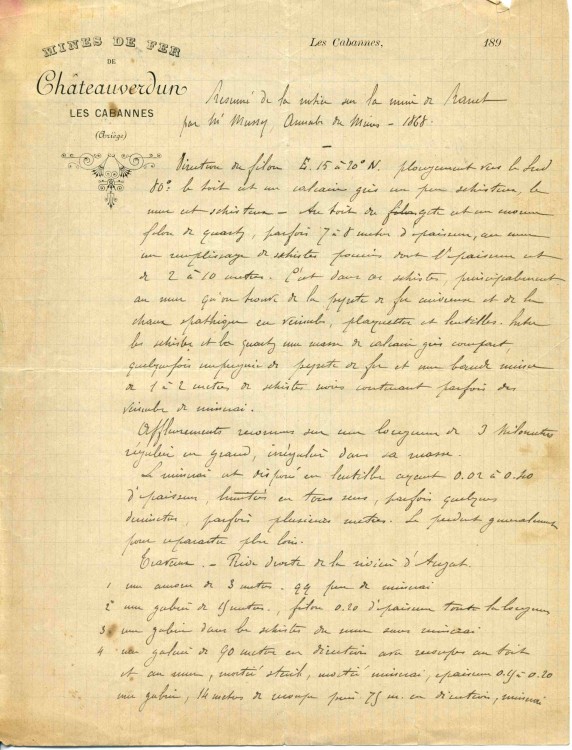 MINES DE FER
DE
Châteauverdun
LES CABANNES
(Ariège)
Les Cabannes, 189
Résumé de la notice sur la mine de Ranet
par Mr Mussy, Annales des Mines - 1868.
Direction du filon E. 15 à 20° N. plongement vers le Sud
80°. le toit est un calcaire gris un peu schisteux, le
mur est schisteux - Au toit du filon gîte est un énorme
filon de quartz, parfois 7 à 8 mètres d'épaisseur, au mur
un remplissage de schistes pourris dont l'épaisseur est
de 2 à 10 mètres. C'est dans ces schistes, principalement
au mur qu'on trouve de la pyrite de fer cuivreuse et de la
chaux spathique en veinules, plaquettes et lentilles. Entre
les schistes et le quartz une masse de calcaire gris compact,
quelquefois imprégnée de pyrite de fer et une bande mince
de 1 à 2 mètres de schistes noirs contenant parfois des
veinules de minerai.
Affleurements reconnus sur une longueur de 3 kilomètres
régulier en grand, irrégulier dans sa masse.
Le minerai est disposé en lentilles ayant 0.02 à 0.40
d'épaisseur, limitées en tous sens, parfois quelques
décimètres, parfois plusieurs mètres. Se perdent généralement
pour reparaître plus loin.
Travaux. - Rive droite de la rivière d'Auzat.
1 une amorce de 3 mètres. qq peu de minerai
2 une galerie de 15 mètres, filon 0.20 d'épaisseur toute la longueur
3 une galerie dans les schistes du mur sans minerai
4 une galerie de 90 mètres en direction avec recoupes au toit
et au mur, moitié stérile, moitié minerai, épaisseur 0.15 à 0.20
une galerie, 14 mètres de recoupe puis 75 m. en direction, minerai